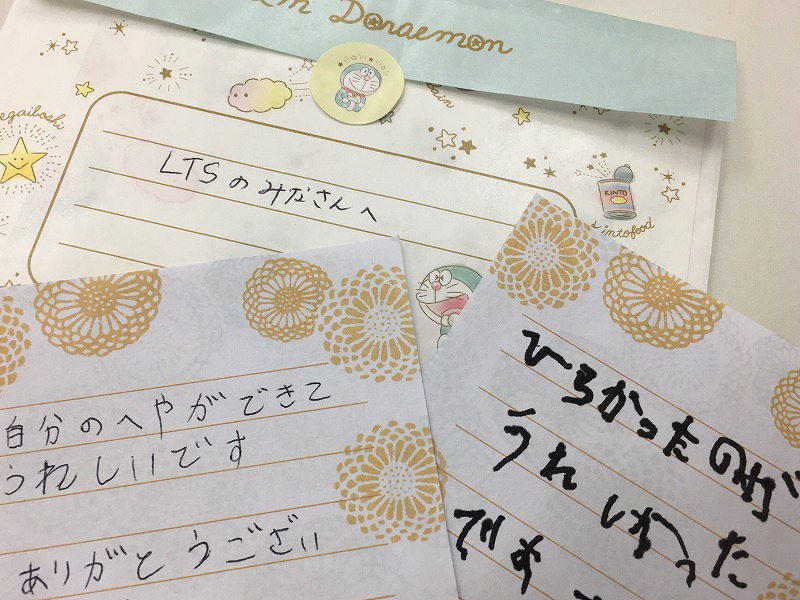 I'm Doraemon
LTSのみなさんへ
KINTO
自分のへやができて
うれしいです
ありがとうござい
ひろかったのが
うれしかった
です